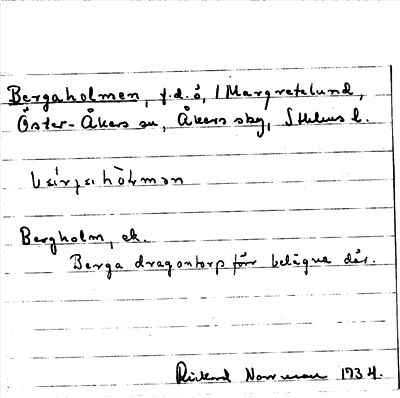 Bergaholmen, f.d. ö, / Margretelund,
Öster-Åkers sn, Åkers skg, Sthlms l.
hòlmən
Bergholm, ek.
Berga dragontorp förr belägna där.
Rickard Norrman 1934.